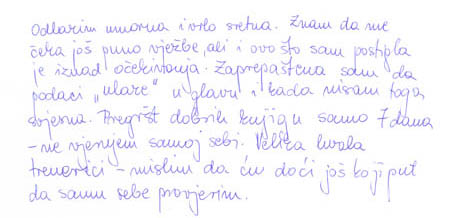 Odlazim umorna i vrlo sretna. Znam da me
čeka još puno vježbe, ali i ovo što sam postigla
je iznad očekivanja. Zaprepaštena sam da
podaci „ulaze” u glavu i kada nisam toga
svjesna. Pregršt dobrih knjiga u samo 7 dana
- ne vjerujem samoj sebi. Velika hvala
trenerici - mislim da ću doći još koji put
da samu sebe provjerim.